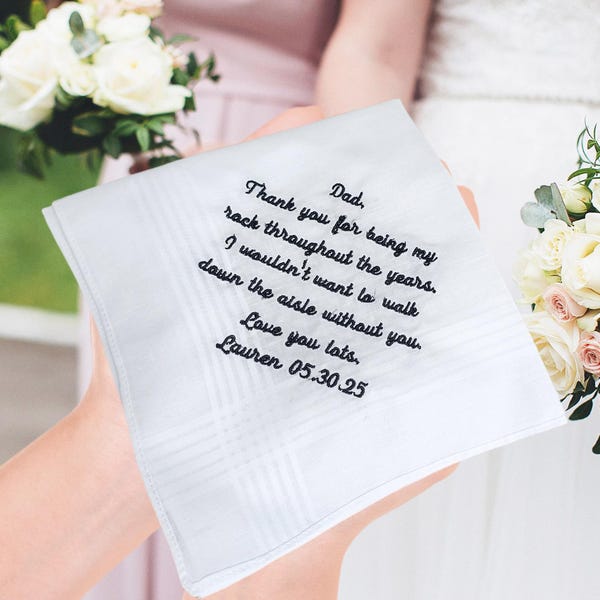 Dad,
Thank you for being my
rock throughout the years,
I wouldn't want to walk
down the aisle without you.
Love you lots,
Lauren 05.30.25